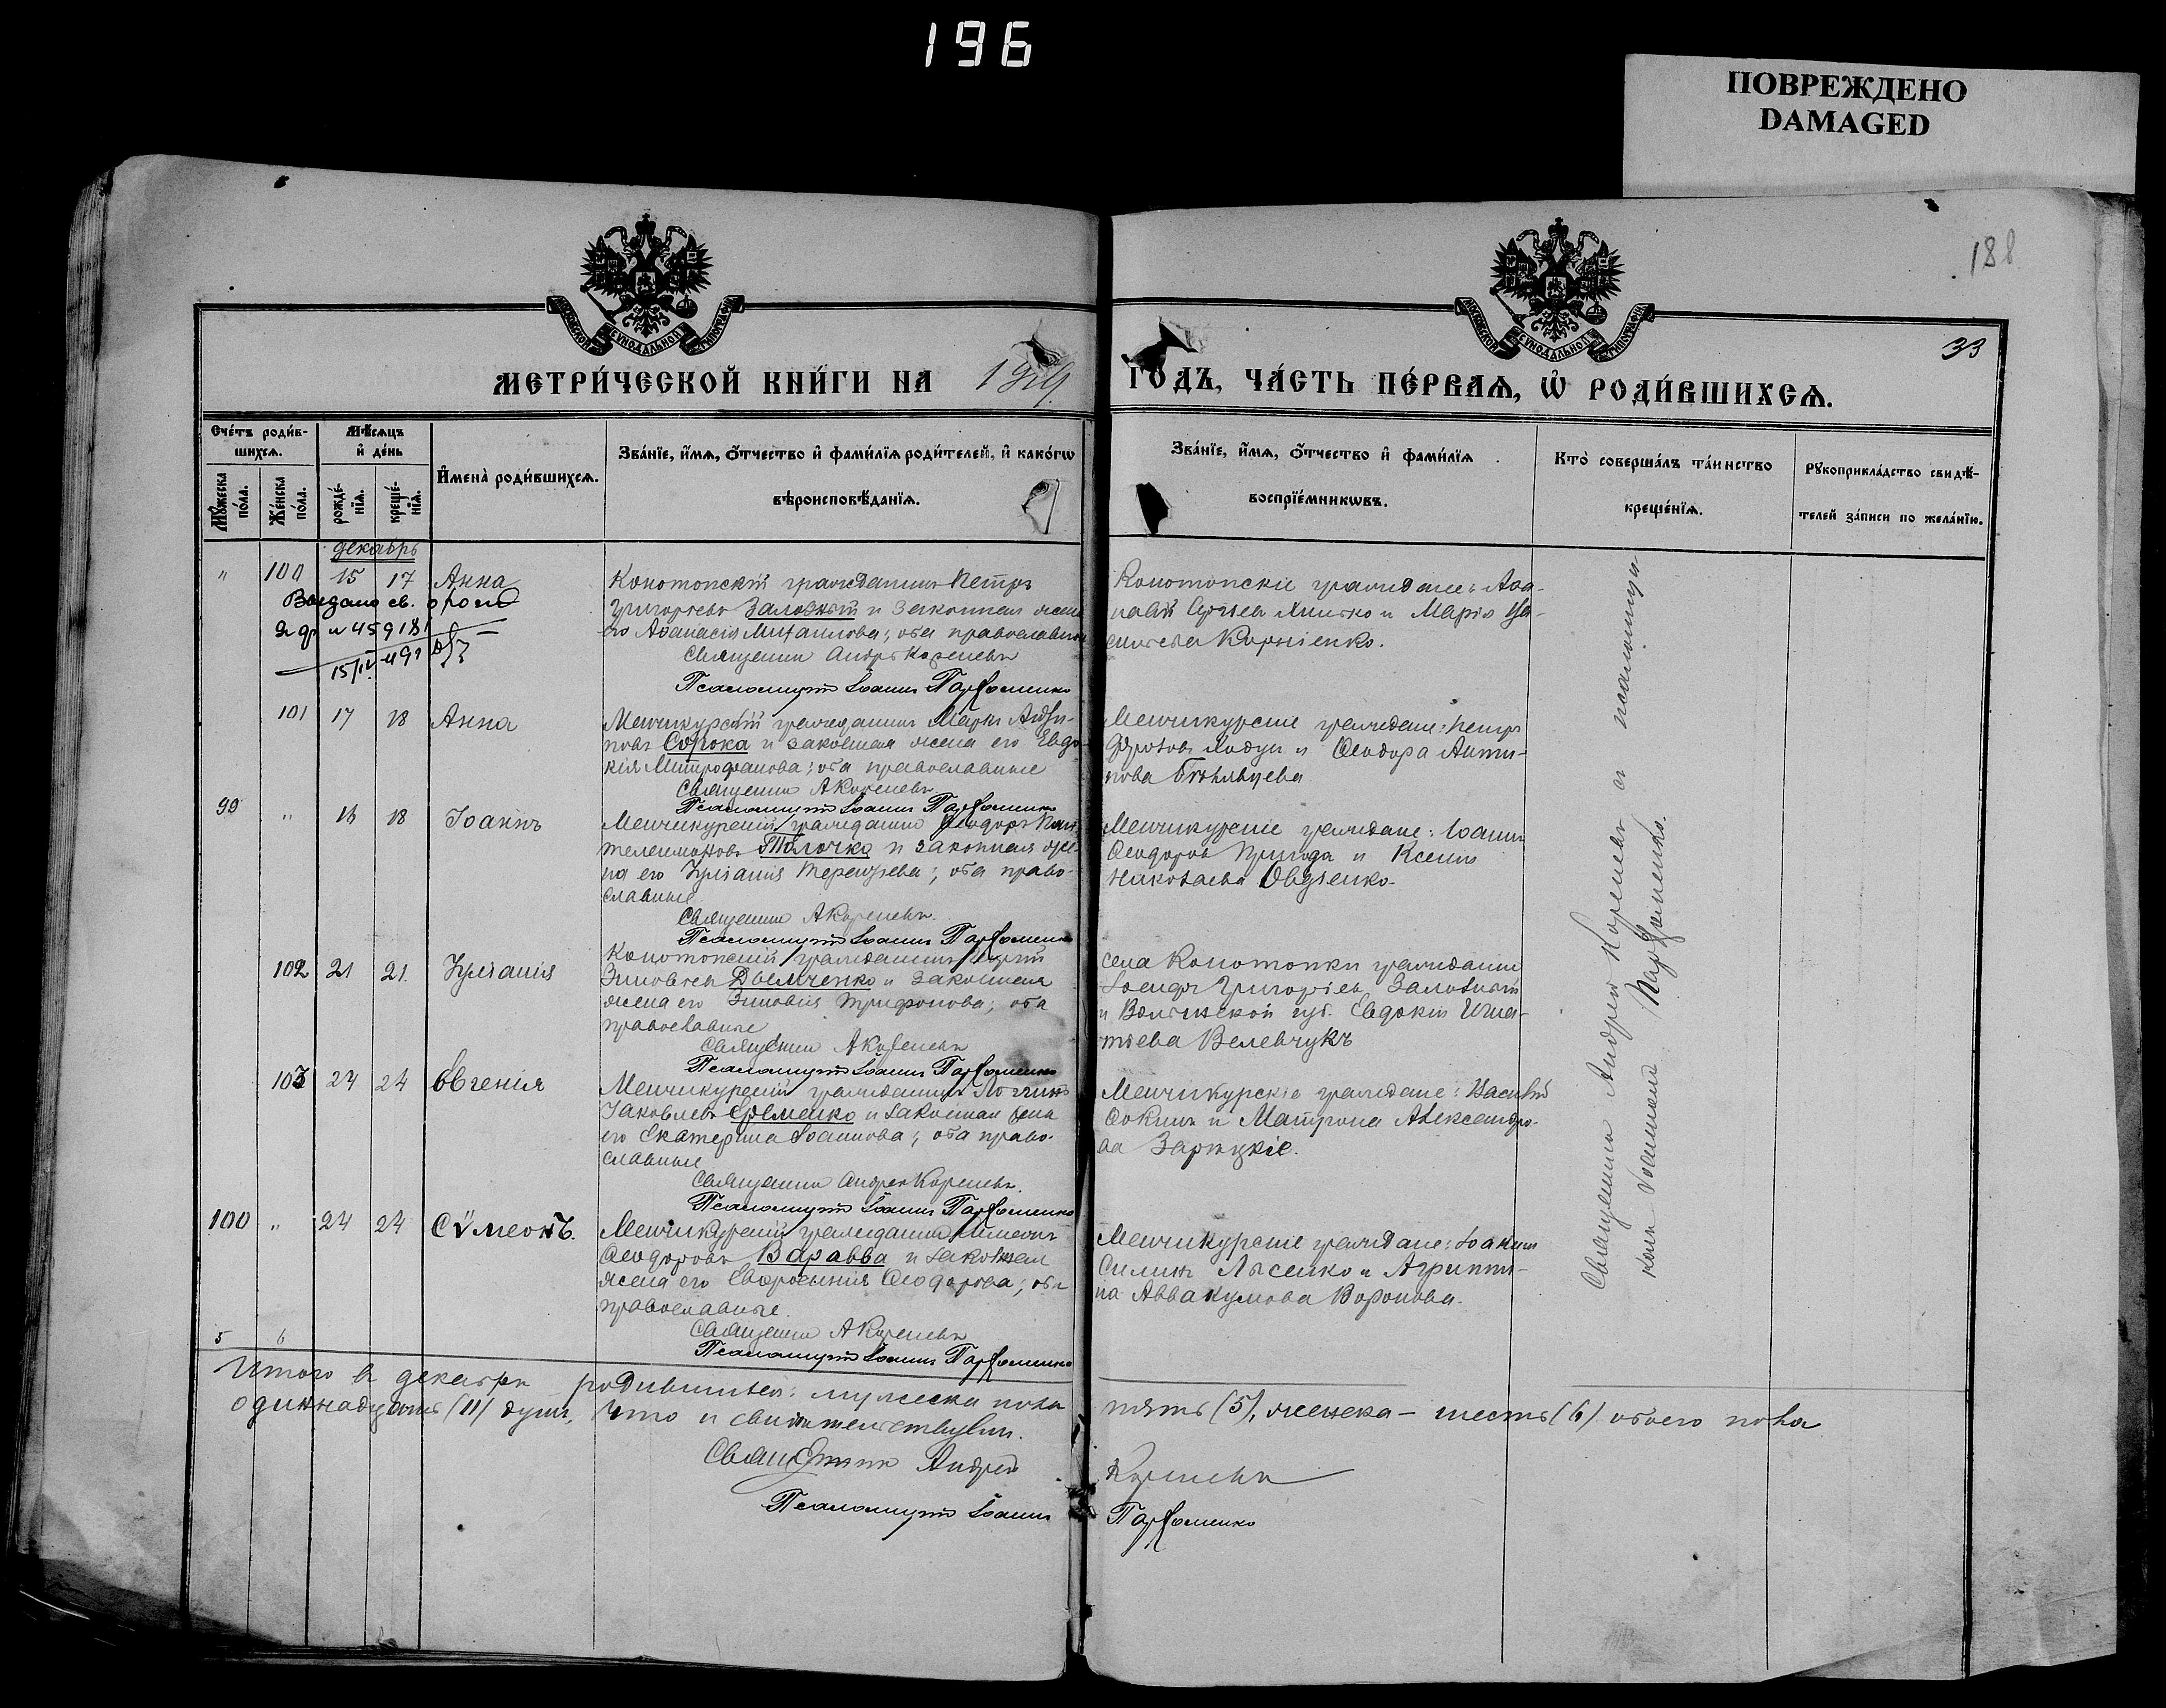 196
ПОВРЕЖДЕНО
DAMAGED
188
33
МОСКОВСКОЙ СѴНОДАЛЬНОЙ ТИПОГРАФІИ
МОСКОВСКОЙ СѴНОДАЛЬНОЙ ТИПОГРАФІИ
МЕТРИ́ЧЕСКОЙ КНИ́ГИ НА 1919
ГОДЪ, ЧА́СТЬ ПЕ́РВАѦ, Ѡ҆ РОДИ́ВШИХСѦ.
Сче́тъ роди́вшихсѧ.
Мꙋ́жеска по́ла.
Же́нска по́ла.
Мѣ́сѧцъ и҆ де́нь
рожде́нїѧ.
креще́нїѧ.
И҆мена̀ роди́вшихсѧ.
Зва́нїе, и҆́мѧ, ѻ҆́тчество и҆ фами́лїѧ роди́телей, и҆ како́гѡ
вѣроисповѣ́данїѧ.
Зва́нїе, и҆́мѧ, ѻ҆́тчество и҆ фами́лїѧ
воспрїе́мникѡвъ.
Кто̀ соверша́лъ та́инство
креще́нїѧ.
Рꙋкоприкла́дство свидѣ́-
телей за́писи по жела́нїю.
декабрь
" 100 15 17 Анна
Конотопскій гражданинъ Петръ
Григорьевъ Заложный и законная жена
его Аѳанасія Михаилова; оба православные
Священникъ Андрей Кореневъ
Псаломщикъ Іоаннъ Парфоменко
Конотопскіе граждане:
и Марія
Корніенко.
101 17 18 Анна
Менчикурскій гражданинъ Маркъ Анти-
повъ Сорока и законная жена его Евдо-
кія Митрофанова; оба православные
Священникъ А Кореневъ
Псаломщикъ Іоаннъ Парфоменко
Менчикурскіе граждане: Петръ
и Ѳеодора Анти-
пова
99 " 18 18 Іоаннъ
Менчикурскій гражданинъ Ѳеодоръ Пан-
телеимоновъ Толочко и законная же-
на его Іуліанія Терентьева; оба право-
славные
Священникъ А Кореневъ.
Псаломщикъ Іоаннъ Парфоменко
Менчикурскіе граждане: Іоаннъ
Ѳеодоровъ Пригода и Ксенія
Николаева Овдіенко.
102 21 21 Іуліанія
Конотопскій гражданинъ
Зиновьевъ Дьяченко и законная
жена его Зиновія Трифонова; оба
православные
Священникъ А Кореневъ
Псаломщикъ Іоаннъ Парфоменко
села Конотопки гражданинъ
Іосифъ Григорьевъ Заложный
и Волынской губ. Евдокія Игна-
тьева Велевчукъ
103 24 24 Евгенія
Менчикурскій гражданинъ Логгинъ
Іаковлевъ Еременко и законная жена
его Екатерина Іоаннова; оба право-
славные
Священникъ Андрей Кореневъ.
Псаломщикъ Іоаннъ Парфоменко
Менчикурскіе граждане: Василій
Ѳокинъ и Матрона Александро-
ва Зарицкіе.
100 " 24 24 Сѵмеонъ.
Менчикурскій гражданинъ Симеонъ
Ѳеодоровъ Варавва и законная
жена его Евфросинія Ѳеодорова; оба
православные.
Священникъ А Кореневъ
Псаломщикъ Іоаннъ Парфоменко
Менчикурскіе граждане: Іоакимъ
Силинъ Лысенко и Агриппи-
на Аввакумова Воронова.
Священникъ Андрей Кореневъ и псаломщи-
комъ Іоанномъ Парфоменко.
5 6
Итого въ декабрѣ родившихся: мужеска пола пять (5), женска – шесть (6) обоего пола
одиннадцать (11) душъ, что и свидѣтельствуемъ.
Священникъ Андрей Кореневъ
Псаломщикъ Іоаннъ Парфоменко